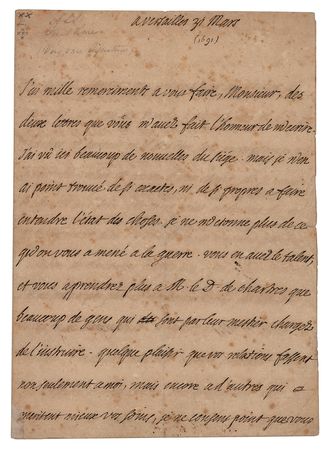 a versailles 31 Mars
(1691)
J'ai mille remerciments a vous faire, Monsieur, des
deux lettres que vous m'avés fait l'honneur de m'ecrire.
J'ai vû ici beaucoup de nouvelles du siége. mais je n'en
ai point trouvé de si exactes, ni de si propres a faire
entendre l'état des choses. je ne m'étonne plus de ce
qu'on vous a mené a la guerre. vous en avés le talent,
et vous apprendrez plus a M. le D. de chartres que
beaucoup de gens qui sont par leur metier chargez
de l'instruire. quelque plaisir que vos relations fassent
non seulement a moi, mais encore a d'autres qui
meritent mieux vos soins, je ne conçois point que vous